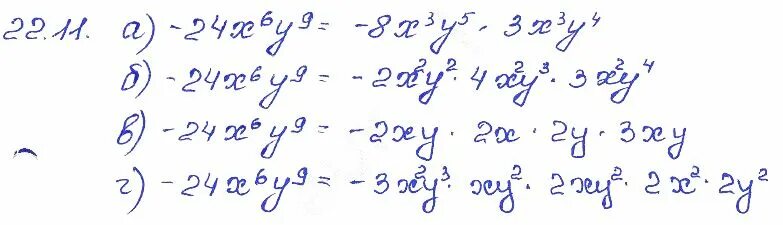 22.11. а) -24x⁶y⁹ = -8x³y⁵ · 3x³y⁴
б) -24x⁶y⁹ = -2x²y² · 4x²y³ · 3x²y⁴
в) -24x⁶y⁹ = -2xy · 2x · 2y · 3xy
г) -24x⁶y⁹ = -3x²y³ · xy² · 2xy² · 2x² · 2y²